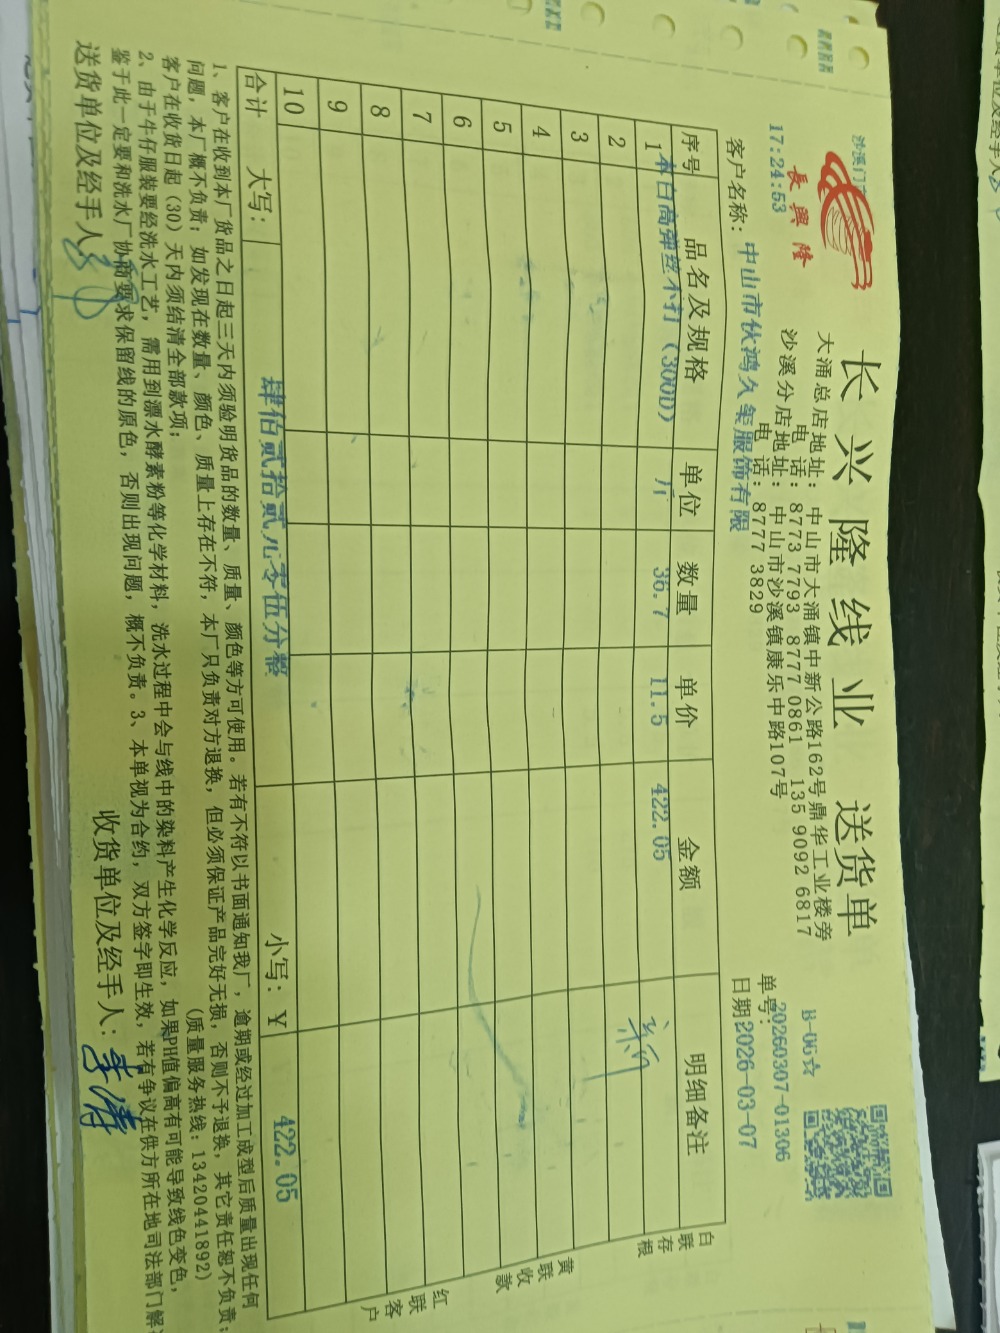 长兴隆线业 送货单
長興隆
沙溪门
17:24:53
大涌总店地址：中山市大涌镇中新公路162号鼎华工业楼旁
电 话：8773 7793 8777 0861 135 9092 6817
沙溪分店地址：中山市沙溪镇康乐中路107号
电 话：8777 3829
B-06☆
单号：20260307-01306
客户名称：中山市伙鸿久玺服饰有限
日期2026-03-07
序号 品名及规格 单位 数量 单价 金额 明细备注
1 本白高弹丝不打（300D） 斤 36.7 11.5 422.05
2
3
4
5
6
7
8
9
10
合计 大写：肆佰贰拾贰元零伍分整 小写：￥ 422.05
白联存根
黄联收款
红联客户
1、客户在收到本厂货品之日起三天内须验明货品的数量、质量、颜色等方可使用。若有不符以书面通知我厂，逾期或经过加工成型后质量出现任何
问题，本厂概不负责；如发现在数量、颜色、质量上存在不符，本厂只负责对方退换，但必须保证产品完好无损，否则不予退换，其它责任恕不负责；
客户在收货日起（30）天内须结清全部款项；
（质量服务热线：13420441892）
2、由于牛仔服装要经洗水工艺，需用到漂水酵素粉等化学材料，洗水过程中会与线中的染料产生化学反应，如果PH值偏高有可能导致线色变色，
鉴于此一定要和洗水厂协商要求保留线的原色，否则出现问题，概不负责。3、本单视为合约，双方签字即生效，若有争议在供方所在地司法部门解
送货单位及经手人
收货单位及经手人：李涛